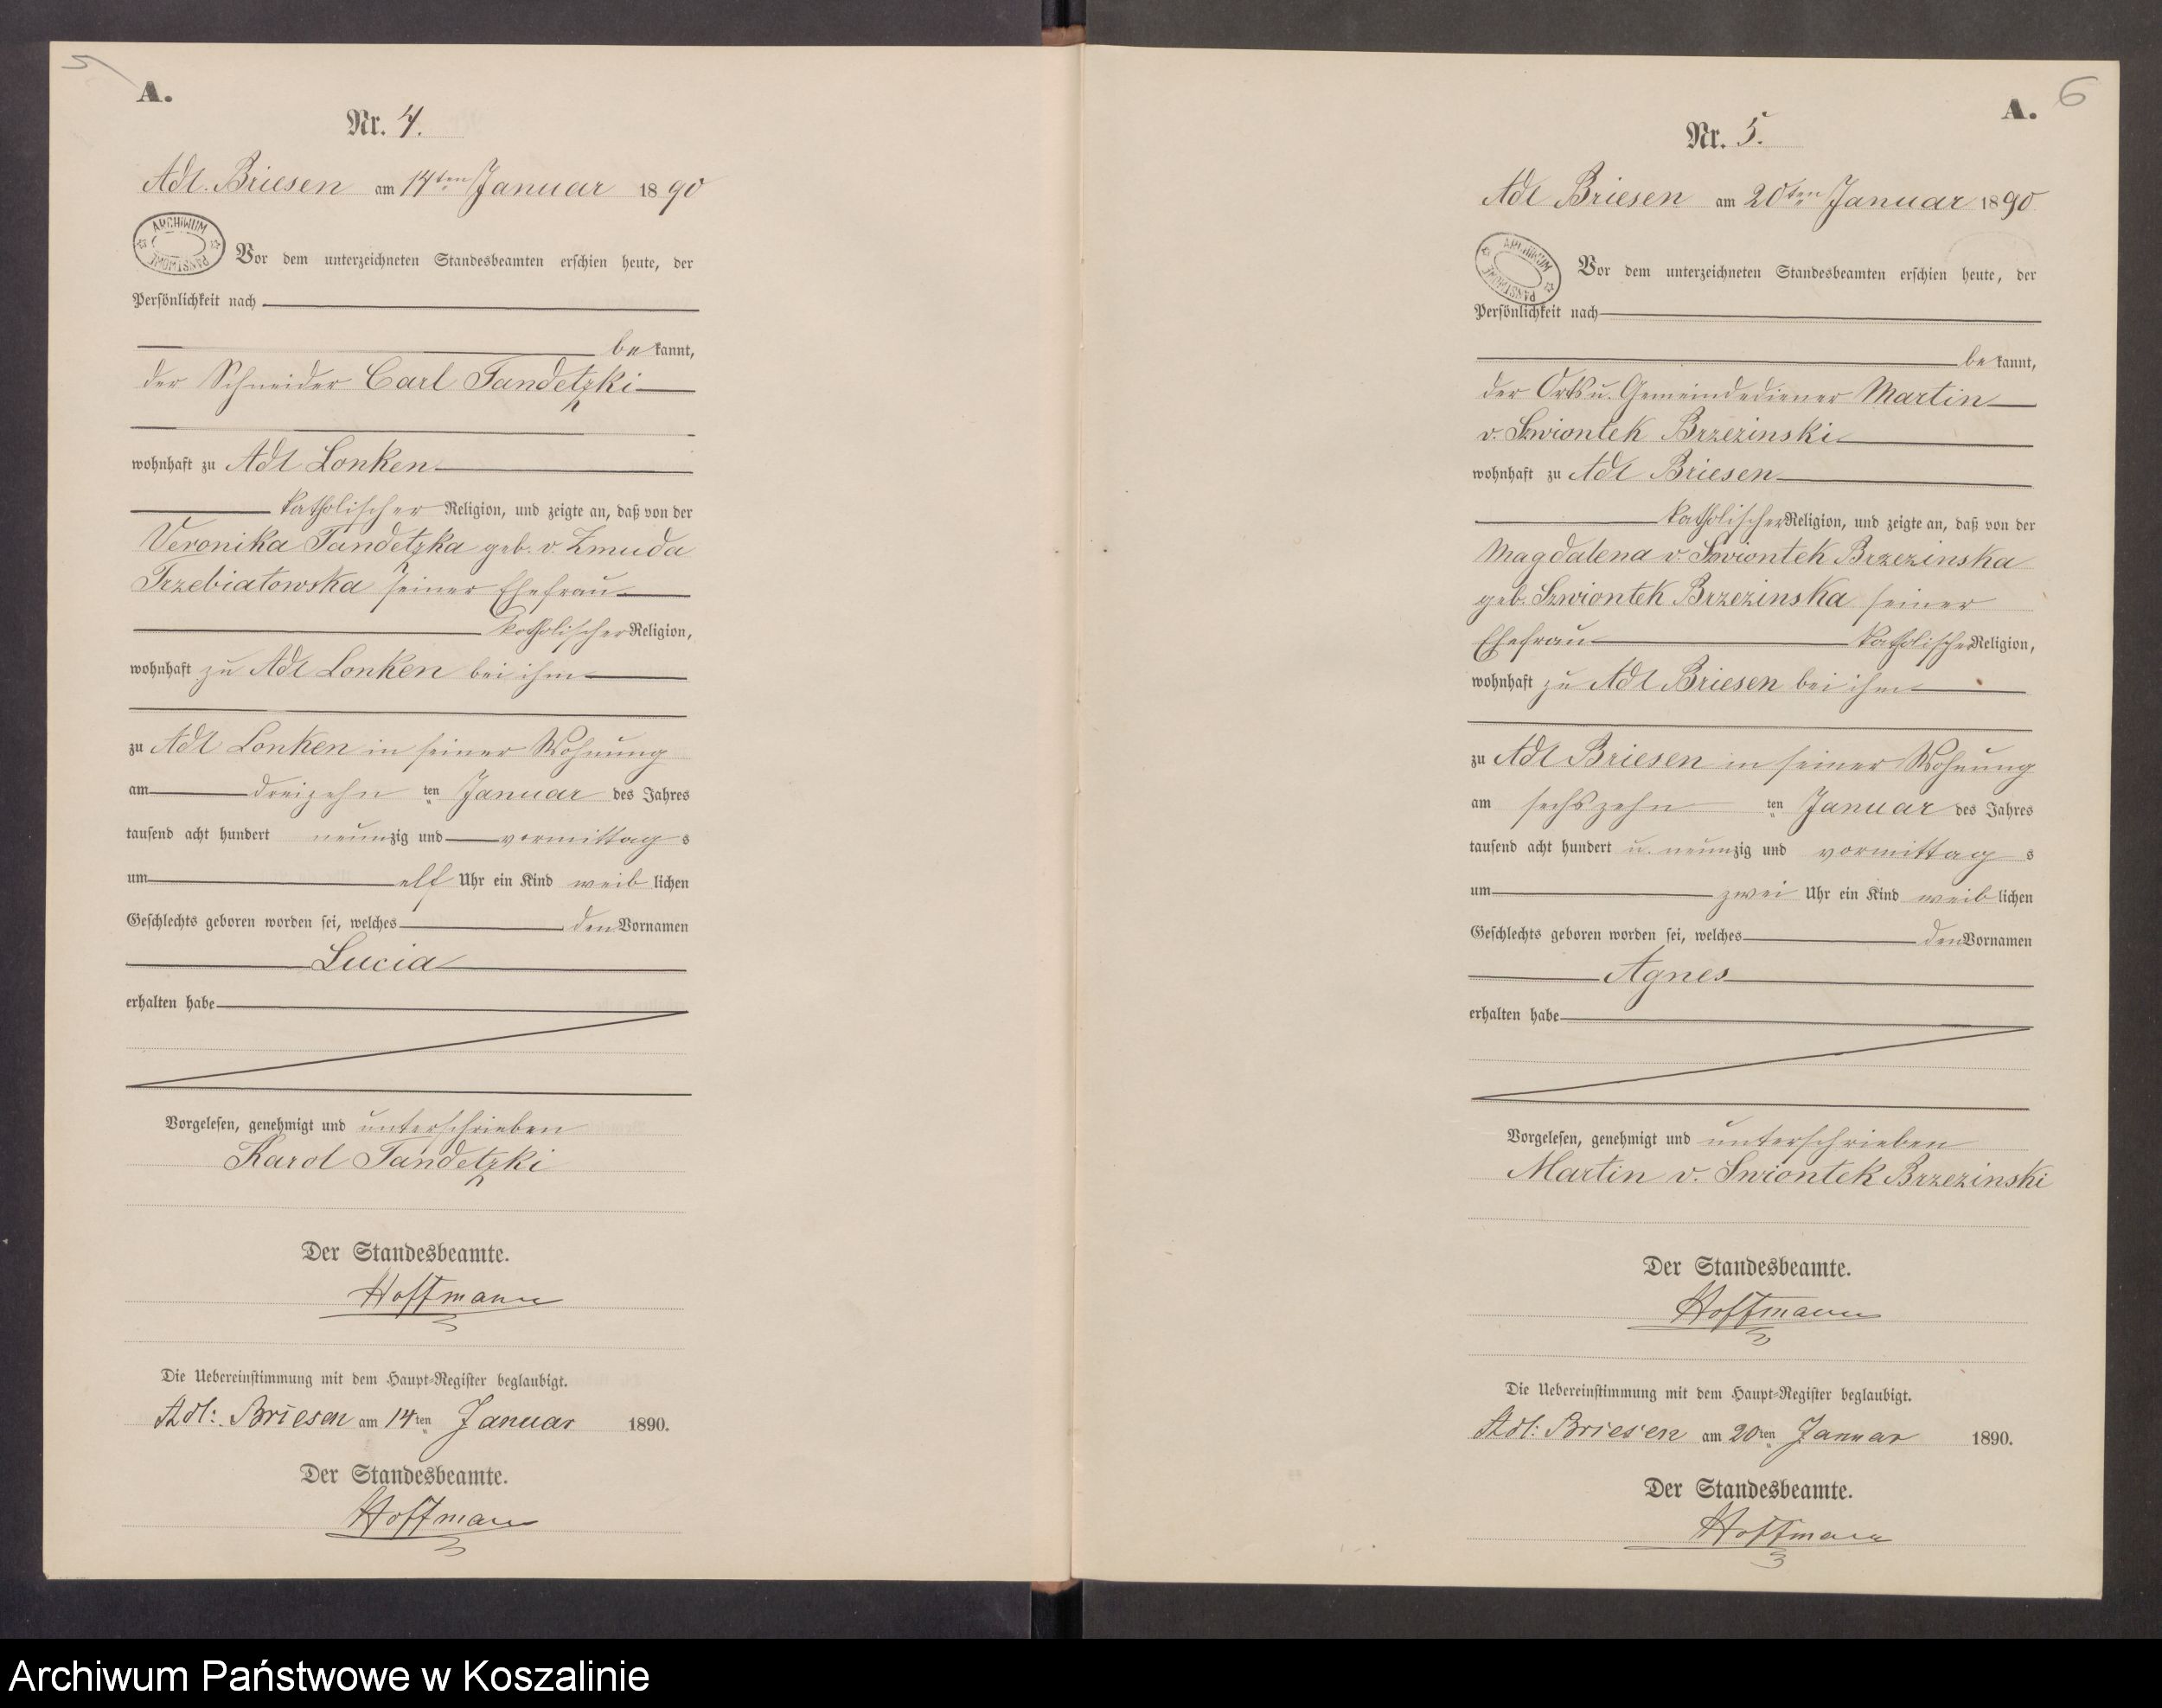 5
A.
Nr. 4.
Adl. Briesen am 14ten Januar 1890
ARCHIWUM PAŃSTWOWE
Vor dem unterzeichneten Standesbeamten erschien heute, der
Persönlichkeit nach
bekannt,
der Schneider Carl Tandetzki
wohnhaft zu Adl Lonken
katholischer Religion, und zeigte an, daß von der
Veronika Tandetzka geb. v. Zmuda
Trzebiatowska seiner Ehefrau
katholischer Religion,
wohnhaft zu Adl Lonken bei ihm
zu Adl Lonken in seiner Wohnung
am dreizehn ten Januar des Jahres
tausend acht hundert neunzig und vormittags
um elf Uhr ein Kind weiblichen
Geschlechts geboren worden sei, welches den Vornamen
Lucia
erhalten habe
Vorgelesen, genehmigt und unterschrieben
Karol Tandetzki
Der Standesbeamte.
Hoffmann
Die Uebereinstimmung mit dem Haupt-Register beglaubigt.
Adl: Briesen am 14ten Januar 1890.
Der Standesbeamte.
Hoffmann
6
A.
Nr. 5.
Adl Briesen am 20ten Januar 1890
ARCHIWUM PAŃSTWOWE
Vor dem unterzeichneten Standesbeamten erschien heute, der
Persönlichkeit nach
bekannt,
der Orts u. Gemeindediener Martin
v. Szwiontek Brzezinski
wohnhaft zu Adl Briesen
katholischer Religion, und zeigte an, daß von der
Magdalena v. Szwiontek Brzezinska
geb. Szwiontek Brzezinska seiner
Ehefrau katholischer Religion,
wohnhaft zu Adl Briesen bei ihm
zu Adl Briesen in seiner Wohnung
am sechszehn ten Januar des Jahres
tausend acht hundert u. neunzig und vormittags
um zwei Uhr ein Kind weiblichen
Geschlechts geboren worden sei, welches den Vornamen
Agnes
erhalten habe
Vorgelesen, genehmigt und unterschrieben
Martin v. Swiontek Brzezinski
Der Standesbeamte.
Hoffmann
Die Uebereinstimmung mit dem Haupt-Register beglaubigt.
Adl: Briesen am 20ten Januar 1890.
Der Standesbeamte.
Hoffmann
Archiwum Państwowe w Koszalinie